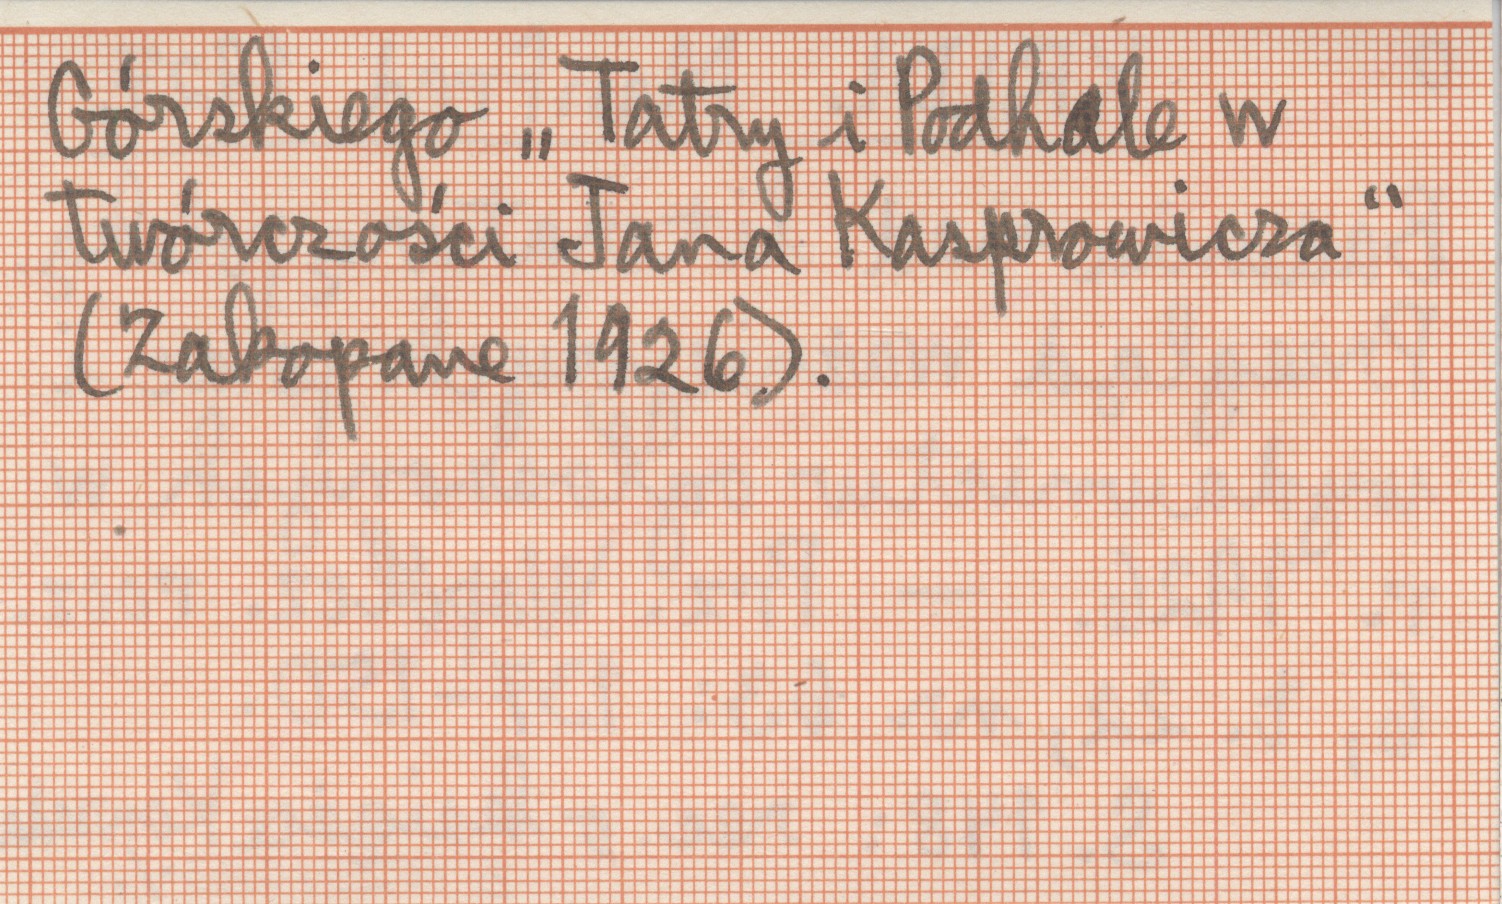 Górskiego „Tatry i Podhale w
twórczości Jana Kasprowicza“
(Zakopane 1926).